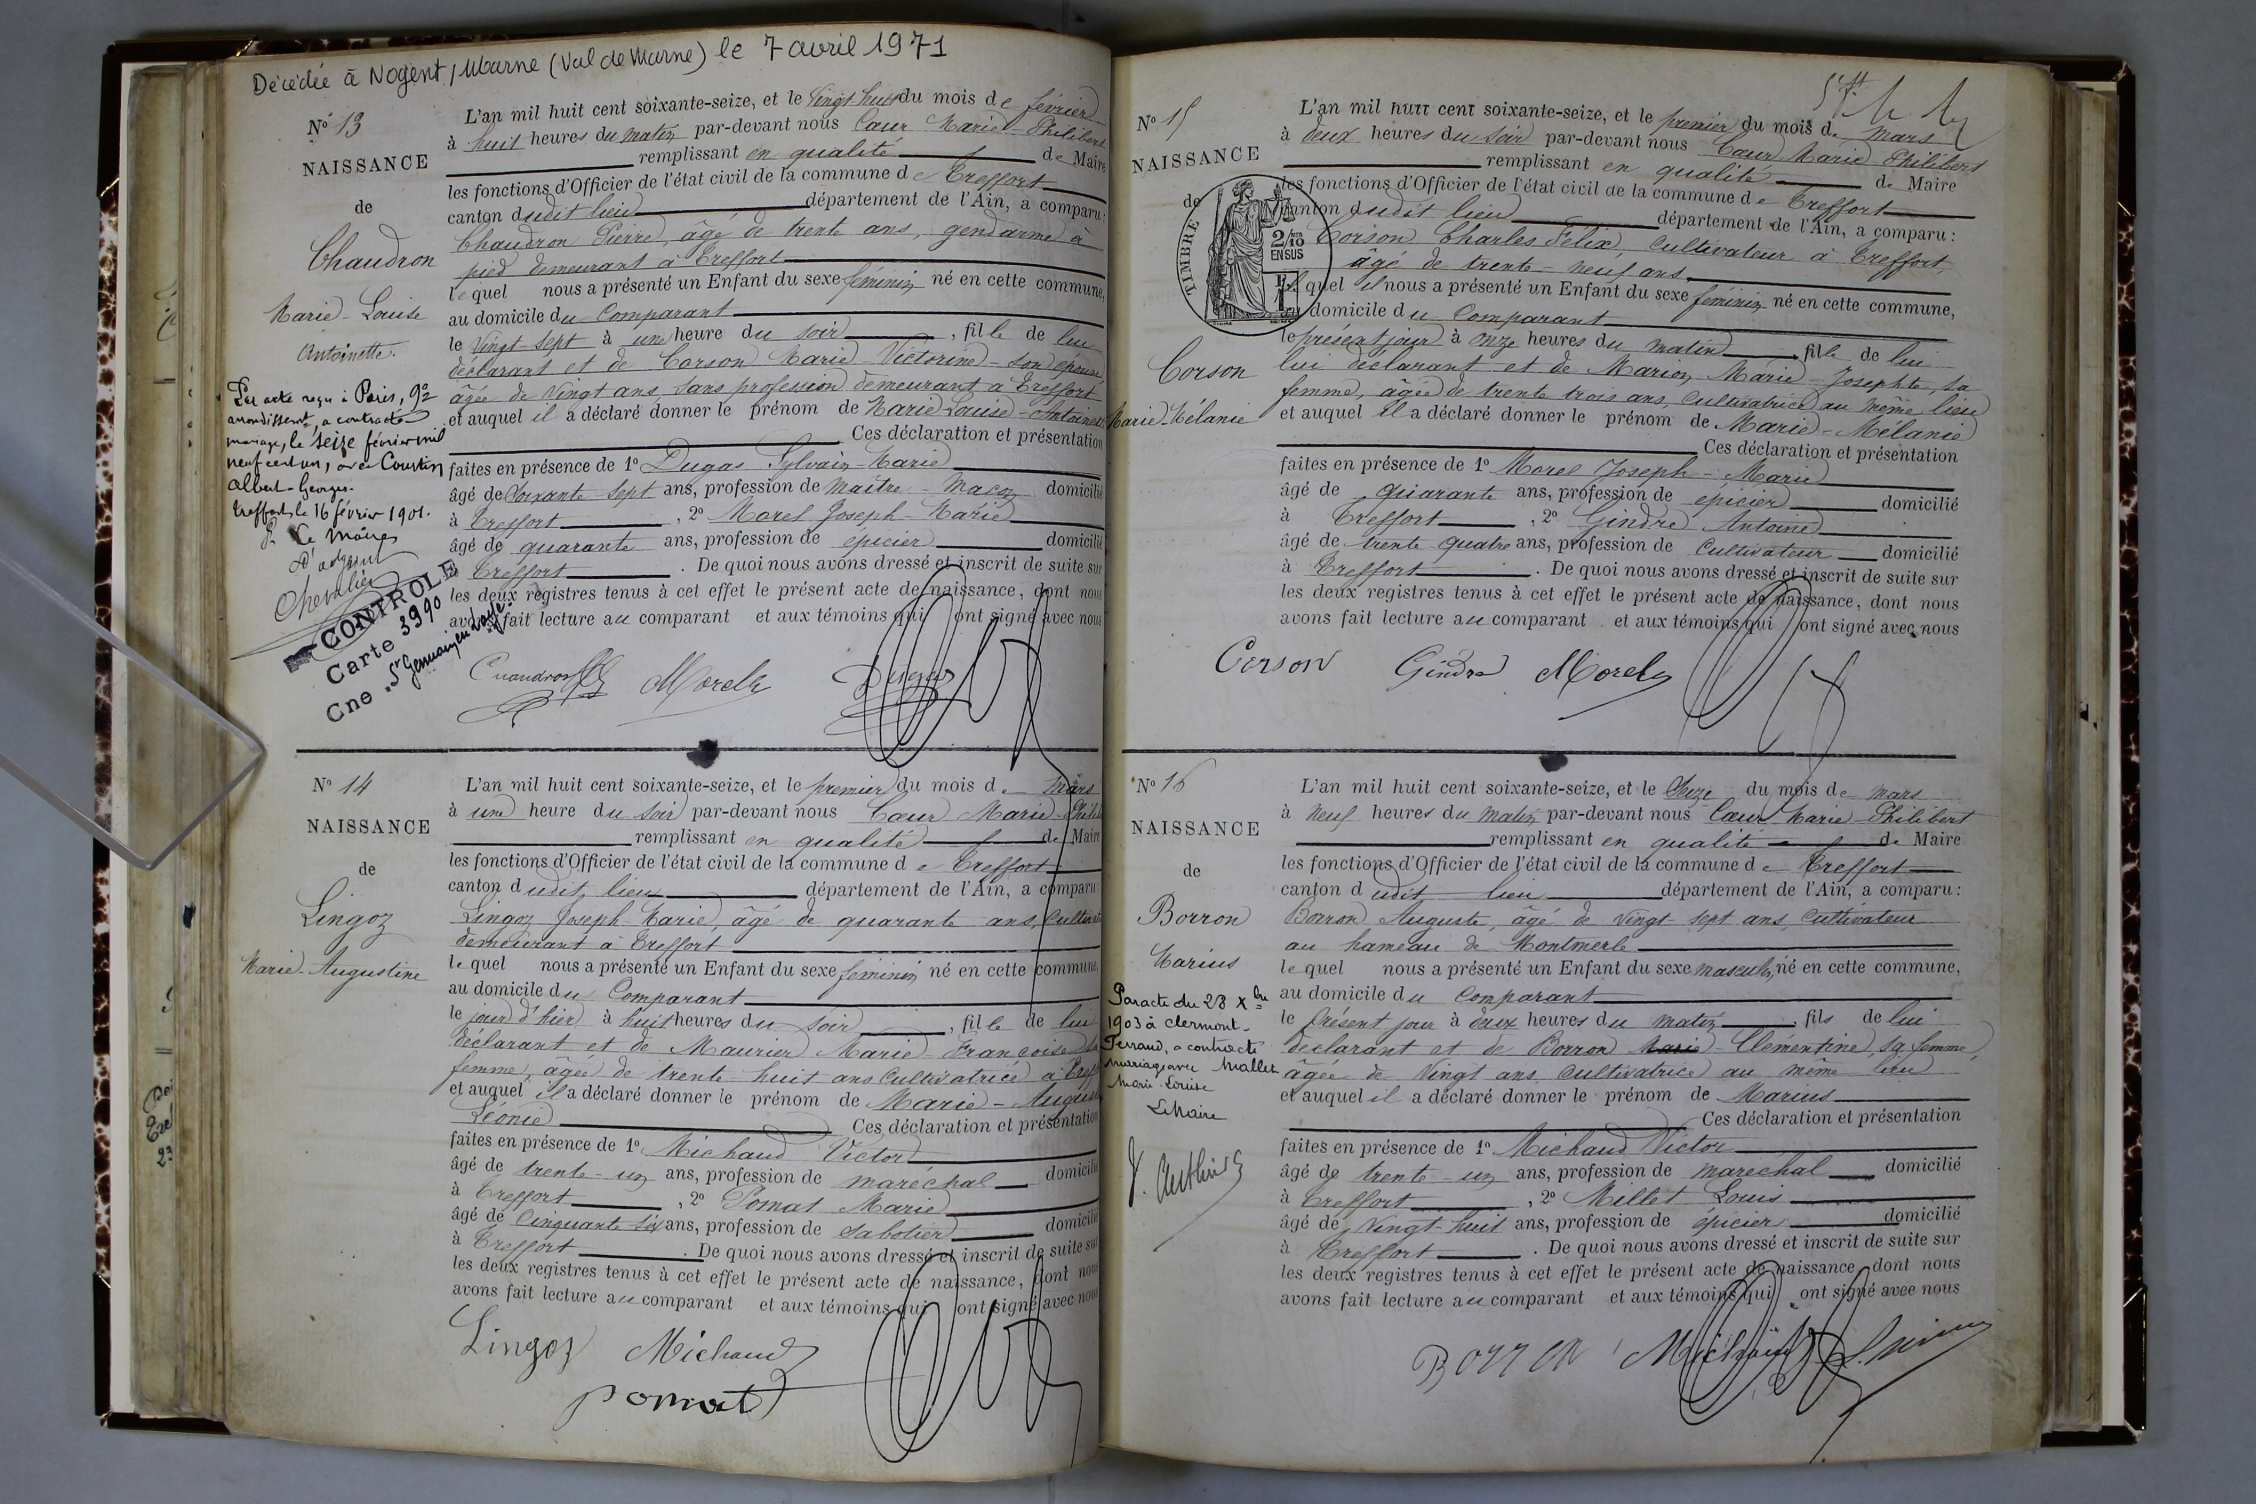 Décédée à Nogent / Marne (Val de Marne) le 7 avril 1971
N° 13
NAISSANCE
de
Chaudron
Marie-Louise
Antoinette.
Par acte reçu à Paris, 9e
arrondissemt, a contracté
mariage, le seize février mil
neuf cent un, avec Courtin
Albert-Georges.
Treffort, le 16 février 1901.
P. Le Maire
Chevalier
CONTROLE
Carte 3990
Cne St Germain en Laye.
L'an mil huit cent soixante-seize, et le vingt huit du mois de février
à huit heures du matin par-devant nous Cœur Marie-Philibert
remplissant en qualité de Maire
les fonctions d'Officier de l'état civil de la commune de Treffort
canton dudit lieu département de l'Ain, a comparu :
Chaudron Pierre, âgé de trente ans, gendarme à
pied demeurant à Treffort
lequel nous a présenté un Enfant du sexe féminin né en cette commune,
au domicile du Comparant
le vingt-sept à une heure du soir, fille de lui
déclarant et de Corson Marie-Victorine son épouse
âgée de vingt ans, sans profession demeurant à Treffort
et auquel il a déclaré donner le prénom de Marie Louise-Antoinette
Ces déclaration et présentation
faites en présence de 1° Dugas Sylvain-Marie
âgé de soixante-sept ans, profession de maître-maçon domicilié
à Treffort, 2° Morel Joseph-Marie
âgé de quarante ans, profession de épicier domicilié
à Treffort. De quoi nous avons dressé et inscrit de suite sur
les deux registres tenus à cet effet le présent acte de naissance, dont nous
avons fait lecture au comparant et aux témoins qui ont signé avec nous
Chaudron Morel
N° 14
NAISSANCE
de
Lingoz
Marie-Augustine
L'an mil huit cent soixante-seize, et le premier du mois de mars
à une heure du soir par-devant nous Cœur Marie-Phili
remplissant en qualité de Maire
les fonctions d'Officier de l'état civil de la commune de Treffort
canton dudit lieu département de l'Ain, a comparu
Lingoz Joseph Marie, âgé de quarante ans, cultivat
demeurant à Treffort
lequel nous a présenté un Enfant du sexe féminin né en cette commune,
au domicile du Comparant
le jour d'hier à huit heures du soir, fille de lui
déclarant et de Maurier Marie-Françoise sa
femme, âgée de trente-huit ans cultivatrice à Treff
et auquel il a déclaré donner le prénom de Marie-August
Léonie Ces déclaration et présentation
faites en présence de 1° Michaud Victor
âgé de trente-un ans, profession de maréchal domicilié
à Treffort, 2° Pomat Marie
âgé de cinquante six ans, profession de sabotier domicilié
à Treffort. De quoi nous avons dressé et inscrit de suite sur
les deux registres tenus à cet effet le présent acte de naissance, dont nous
avons fait lecture au comparant et aux témoins qui ont signé avec nous
Lingoz Michaud
Pomat
N° 15
NAISSANCE
de
Corson
Marie-Mélanie
TIMBRE
2/10
EN SUS
L'an mil huit cent soixante-seize, et le premier du mois de mars
à deux heures du soir par-devant nous Cœur Marie Philibert
remplissant en qualité de Maire
les fonctions d'Officier de l'état civil de la commune de Treffort
canton dudit lieu département de l'Ain, a comparu :
Corson Charles Félix, cultivateur à Treffort,
âgé de trente-neuf ans
lequel il nous a présenté un Enfant du sexe féminin né en cette commune,
au domicile du Comparant
le présent jour à onze heures du matin, fille de lui
lui déclarant et de Marion Marie-Josephte, sa
femme, âgée de trente trois ans, cultivatrice au même lieu
et auquel il a déclaré donner le prénom de Marie-Mélanie
Ces déclaration et présentation
faites en présence de 1° Morel Joseph-Marie
âgé de quarante ans, profession de épicier domicilié
à Treffort, 2° Gindre Antoine
âgé de trente quatre ans, profession de cultivateur domicilié
à Treffort. De quoi nous avons dressé et inscrit de suite sur
les deux registres tenus à cet effet le présent acte de naissance, dont nous
avons fait lecture au comparant et aux témoins qui ont signé avec nous
Corson Gindre Morel
N° 16
NAISSANCE
de
Borron
Marius
Par acte du 28 Xbre
1903 à Clermont-
Ferrand, a contracté
mariage avec Mallet
Marie Louise
Le Maire
L'an mil huit cent soixante-seize, et le onze du mois de mars
à neuf heures du matin par-devant nous Cœur Marie-Philibert
remplissant en qualité de Maire
les fonctions d'Officier de l'état civil de la commune de Treffort
canton dudit lieu département de l'Ain, a comparu :
Borron Auguste, âgé de vingt-sept ans, cultivateur
au hameau de Montmerle
lequel nous a présenté un Enfant du sexe masculin, né en cette commune,
au domicile du Comparant
le présent jour à deux heures du matin, fils de lui
déclarant et de Borron Marie-Clémentine, sa femme,
âgée de vingt ans cultivatrice au même lieu
et auquel il a déclaré donner le prénom de Marius
Ces déclaration et présentation
faites en présence de 1° Michaud Victor
âgé de trente-un ans, profession de maréchal domicilié
à Treffort, 2° Millet Louis
âgé de vingt-huit ans, profession de épicier domicilié
à Treffort. De quoi nous avons dressé et inscrit de suite sur
les deux registres tenus à cet effet le présent acte de naissance dont nous
avons fait lecture au comparant et aux témoins qui ont signé avec nous
Borron Michaud